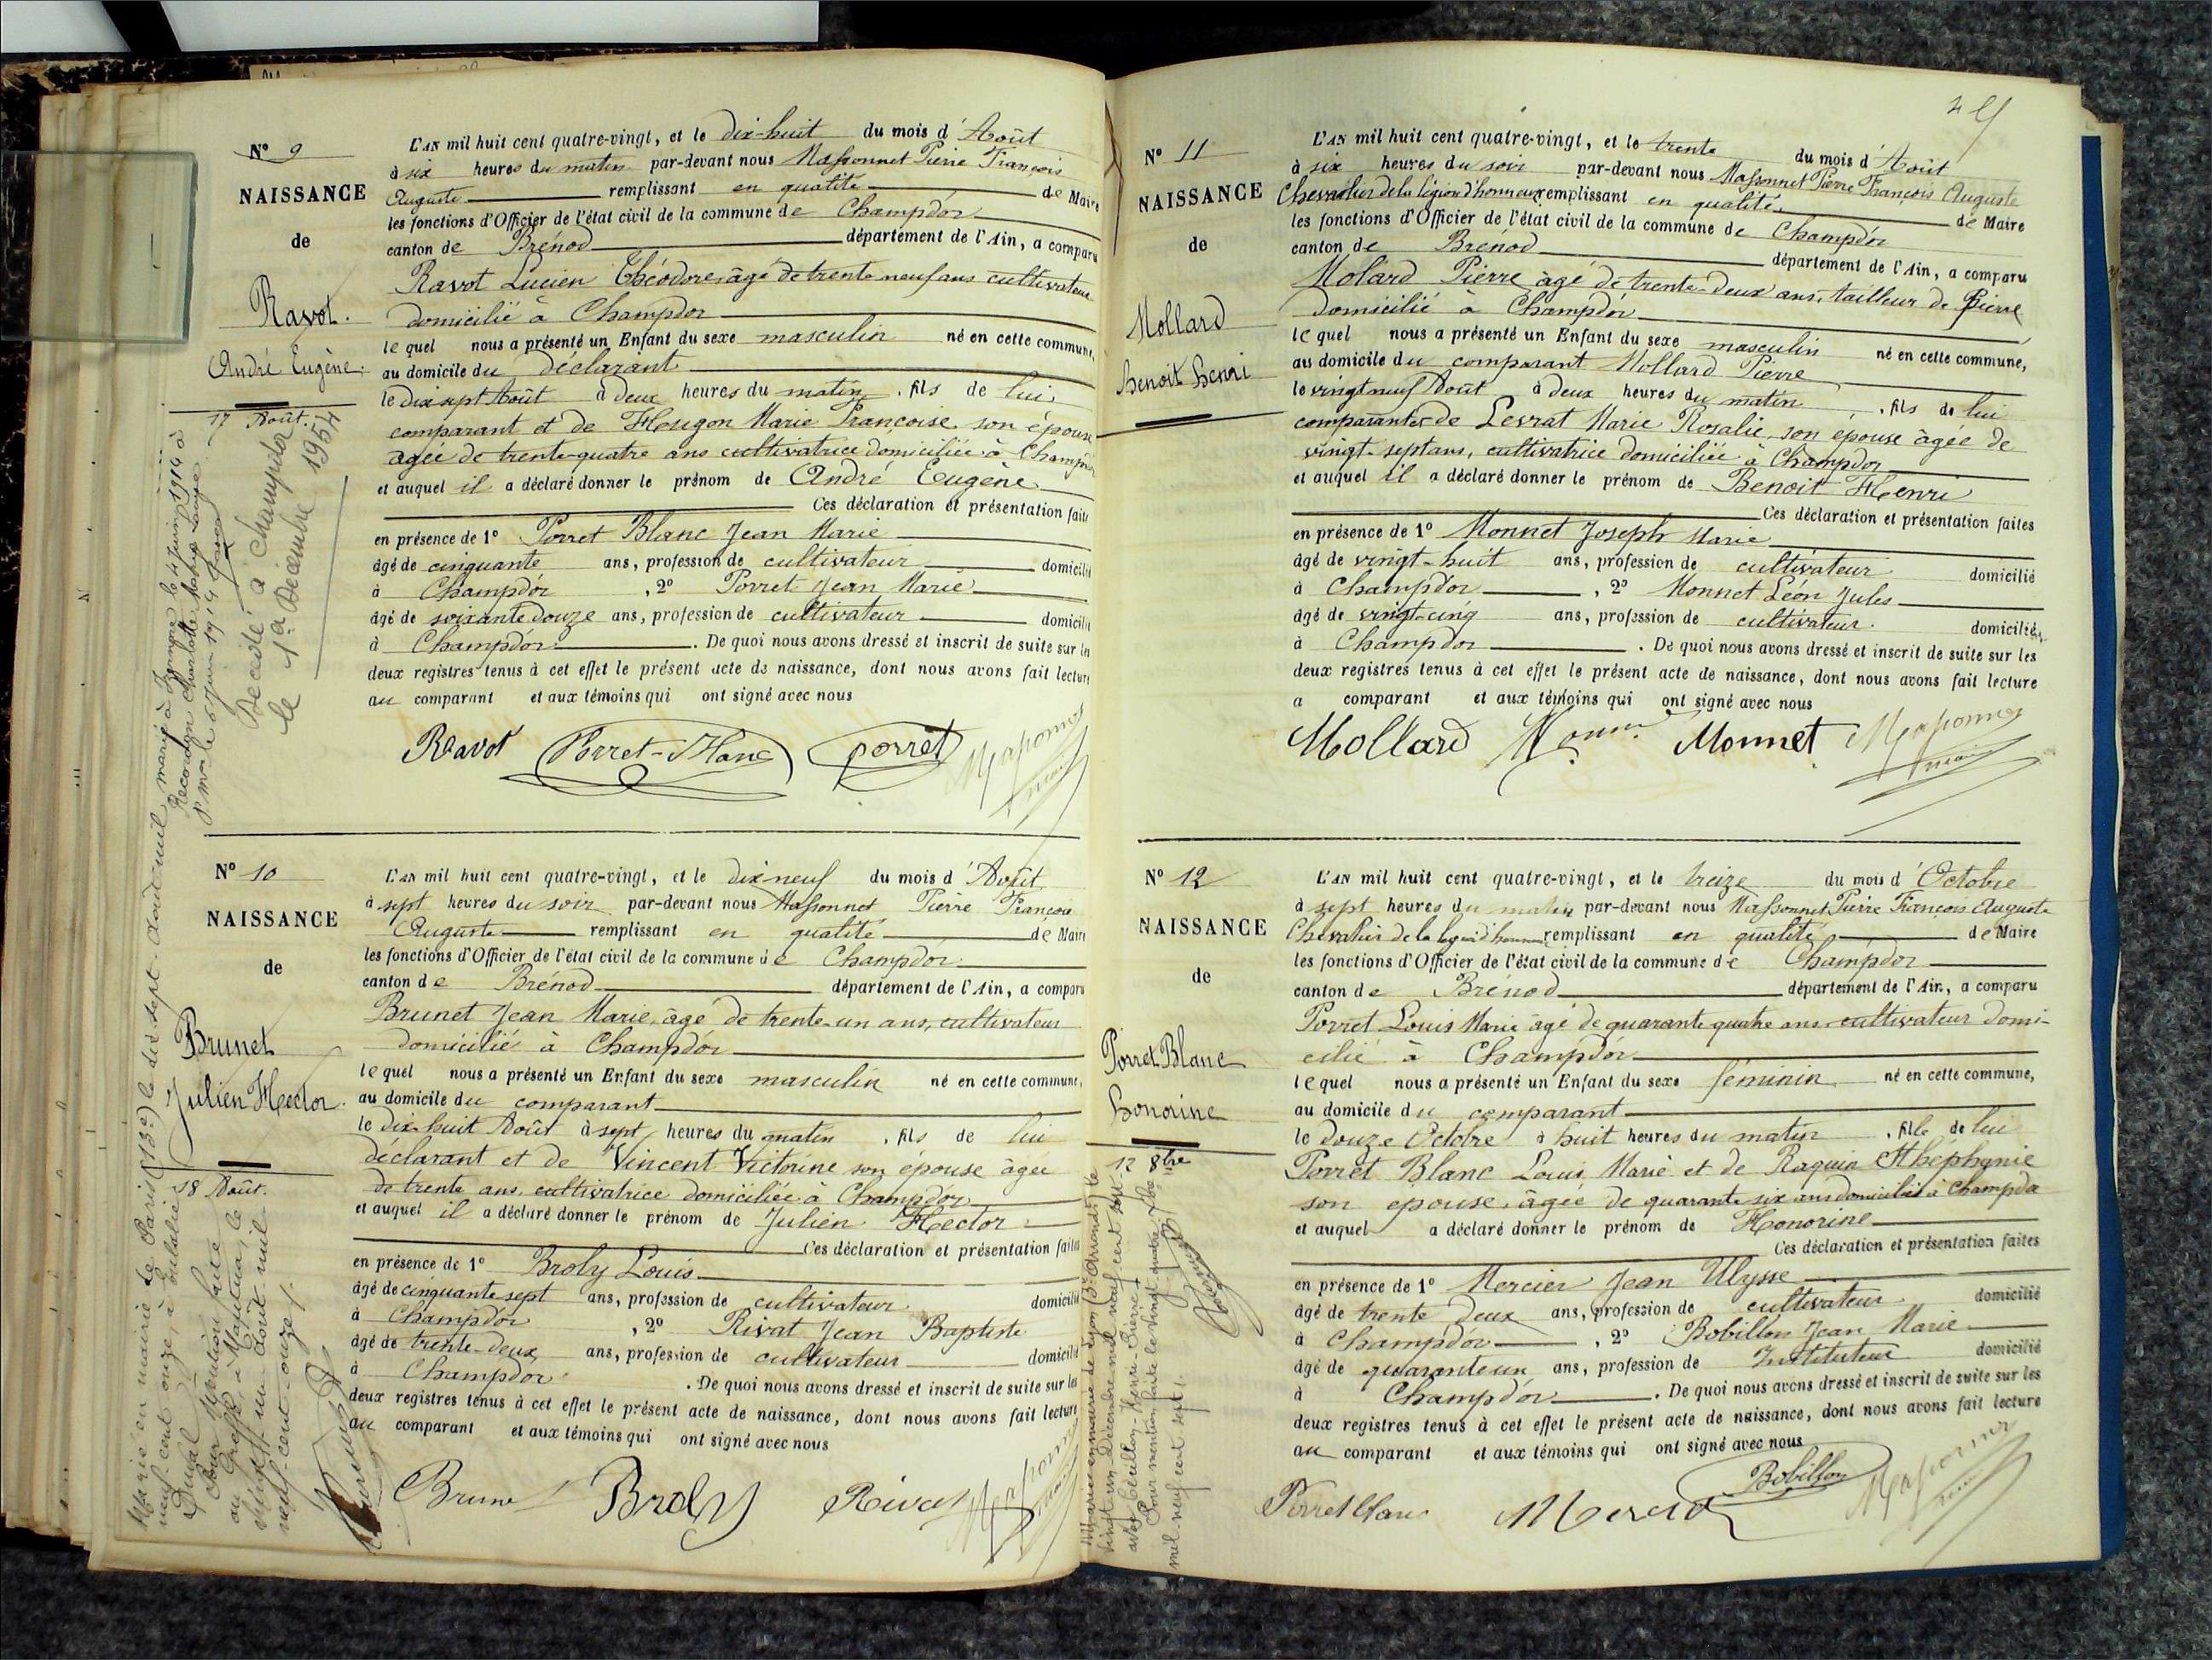 Nº 9
NAISSANCE
de
Ravot.
André Eugène.
17 Août.
Décédé à Champdor
le 1er Décembre 1954
L'AN mil huit cent quatre-vingt, et le dix-huit du mois d'Août
à six heures du matin par-devant nous Massonnet Pierre François
Auguste remplissant en qualité de Maire
les fonctions d'Officier de l'état civil de la commune de Champdor
canton de Brénod département de l'Ain, a comparu
Ravot Lucien Théodore, âgé de trente neuf ans cultivateur
domicilié à Champdor
lequel nous a présenté un Enfant du sexe masculin né en cette commune,
au domicile du déclarant
le dix sept Août à deux heures du matin, fils de lui
comparant et de Hugon Marie Françoise son épouse
agée de trente-quatre ans cultivatrice domiciliée à Champdor
et auquel il a déclaré donner le prénom de André Eugène
Ces déclaration et présentation faites
en présence de 1º Porret Blanc Jean Marie
âgé de cinquante ans, profession de cultivateur domicilié
à Champdor, 2º Porret Jean Marie
âgé de soixante douze ans, profession de cultivateur domicilié
à Champdor. De quoi nous avons dressé et inscrit de suite sur les
deux registres tenus à cet effet le présent acte de naissance, dont nous avons fait lecture
au comparant et aux témoins qui ont signé avec nous
Ravot Porret-Blanc porret Massonnet
maire
Nº 10
NAISSANCE
de
Brunet
Julien Hector.
18 Août.
Marié en mairie de Paris (13e) le dix sept Août mil
neuf cent onze, à Eulalie
Duval
Pour Mention faite
au Greffe à Nantua, le
vingt un Août mil
neuf-cent-onze
L'AN mil huit cent quatre-vingt, et le dix neuf du mois d'Août
à sept heures du soir par-devant nous Massonnet Pierre François
Auguste remplissant en qualité de Maire
les fonctions d'Officier de l'état civil de la commune de Champdor
canton de Brénod département de l'Ain, a comparu
Brunet Jean Marie, âgé de trente-un ans, cultivateur
domicilié à Champdor
lequel nous a présenté un Enfant du sexe masculin né en cette commune,
au domicile du comparant
le dix-huit Août à sept heures du matin, fils de lui
déclarant et de Vincent Victorine son épouse âgée
de trente ans, cultivatrice domiciliée à Champdor
et auquel il a déclaré donner le prénom de Julien Hector
Ces déclaration et présentation faites
en présence de 1º Broly Louis
âgé de cinquante sept ans, profession de cultivateur domicilié
à Champdor, 2º Rivat Jean Baptiste
âgé de trente-deux ans, profession de cultivateur domicilié
à Champdor. De quoi nous avons dressé et inscrit de suite sur les
deux registres tenus à cet effet le présent acte de naissance, dont nous avons fait lecture
au comparant et aux témoins qui ont signé avec nous
Brunet Broly Rivat Massonnet
Nº 11
NAISSANCE
de
Mollard
Benoit Henri
L'AN mil huit cent quatre-vingt, et le trente du mois d'Août
à six heures du soir par-devant nous Massonnet Pierre François Auguste
Chevalier de la légion d'honneur remplissant en qualité de Maire
les fonctions d'Officier de l'état civil de la commune de Champdor
canton de Brénod département de l'Ain, a comparu
Molard Pierre âgé de trente-deux ans, tailleur de Pierre
domicilié à Champdor
lequel nous a présenté un Enfant du sexe masculin né en cette commune,
au domicile du comparant Mollard Pierre
le vingt neuf Août à deux heures du matin, fils de lui
comparant et de Levrat Marie Rosalie, son épouse âgée de
vingt-sept ans, cultivatrice domiciliée à Champdor
et auquel il a déclaré donner le prénom de Benoit Henri
Ces déclaration et présentation faites
en présence de 1º Monnet Joseph Marie
âgé de vingt-huit ans, profession de cultivateur domicilié
à Champdor, 2º Monnet Léon Jules
âgé de vingt-cinq ans, profession de cultivateur. domicilié
à Champdor. De quoi nous avons dressé et inscrit de suite sur les
deux registres tenus à cet effet le présent acte de naissance, dont nous avons fait lecture
a comparant et aux témoins qui ont signé avec nous
Mollard Monnet Massonnet
maire
Nº 12
NAISSANCE
de
Porret Blanc
Honorine
12 8bre
Mariée en mairie de Lyon (3e Arrondt) le
vingt-un Décembre mil neuf cent sept
avec Béccillon Henri Pierre
Pour mention faite le vingt quatre Xbre
mil neuf cent sept
L'AN mil huit cent quatre-vingt, et le treize du mois d'Octobre
à sept heures du matin par-devant nous Massonnet Pierre François Auguste
Chevalier de la légion d'honneur remplissant en qualité de Maire
les fonctions d'Officier de l'état civil de la commune de Champdor
canton de Brénod département de l'Ain, a comparu
Porret Louis Marie âgé de quarante quatre ans cultivateur domi-
cilié à Champdor
lequel nous a présenté un Enfant du sexe féminin né en cette commune,
au domicile du comparant
le douze Octobre à huit heures du matin, fille de lui
Porret Blanc Louis Marie et de Raguin Sthéphanie
son epouse, âgée de quarante six ans domiciliée à Champdor
et auquel a déclaré donner le prénom de Honorine
Ces déclaration et présentation faites
en présence de 1º Mercier Jean Ulysse
âgé de trente deux ans, profession de cultivateur domicilié
à Champdor, 2º Bobillon Jean Marie
âgé de quarante un ans, profession de Instituteur domicilié
à Champdor. De quoi nous avons dressé et inscrit de suite sur les
deux registres tenus à cet effet le présent acte de naissance, dont nous avons fait lecture
au comparant et aux témoins qui ont signé avec nous
Porret Blanc Mercier Bobillon Massonnet